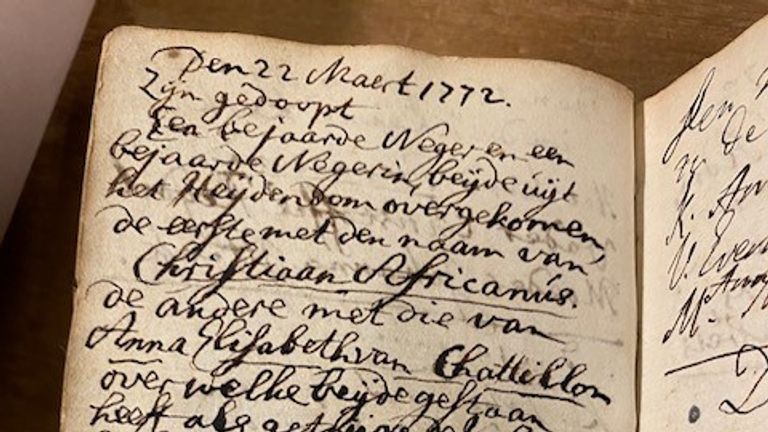 Den 22 Maert 1772.
Zijn gedoopt
Een bejaarde Neger en een
bejaarde Negerin, beÿde uijt
het Heÿdendom overgekomen,
de eerste met den naam van
Christiaan Africanús.
de andere met die van
Anna Elisabeth van Chattillon
over welke beÿde gestaan
heeft als getuige de
den
de
K.
V. Even
M.